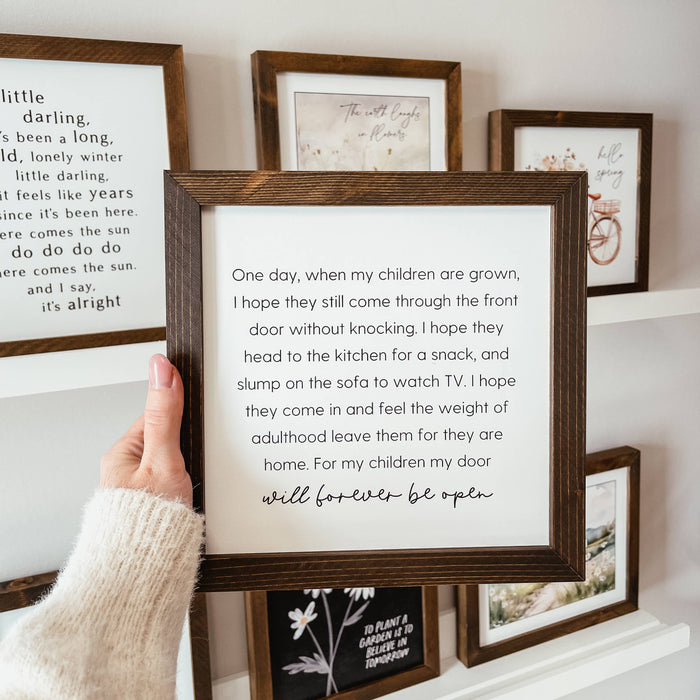 little
darling,
been a long,
lonely winter
little darling,
it feels like years
since it's been here.
comes the sun
do do do do
comes the sun.
and I say,
it's alright
The earth laughs
in flowers
hello
spring
One day, when my children are grown,
I hope they still come through the front
door without knocking. I hope they
head to the kitchen for a snack, and
slump on the sofa to watch TV. I hope
they come in and feel the weight of
adulthood leave them for they are
home. For my children my door
will forever be open
TO PLANT A
GARDEN IS TO
BELIEVE IN
TOMORROW